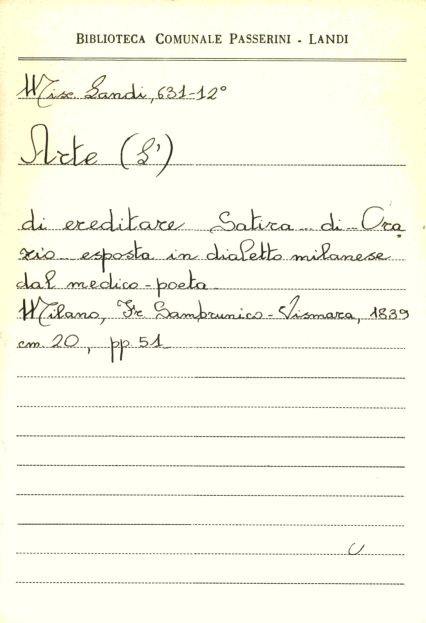 BIBLIOTECA COMUNALE PASSERINI - LANDI
Misc. Landi, 631-12°
Arte (L')
di ereditare Satira di Ora
zio esposta in dialetto milanese
dal medico-poeta
Milano, Fr Sambrunico-Vismara, 1839
cm. 20, pp. 51